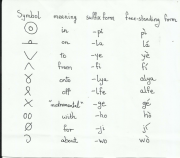 Symbol meaning suffix form free-standing form
in -pi pì
on -la lá
to -ye yè
from -fi fí
onto -lya alya
off -lfe alfe
"instrumental" -ge gé
with -ho hò
for -ji jí
about -wo wò